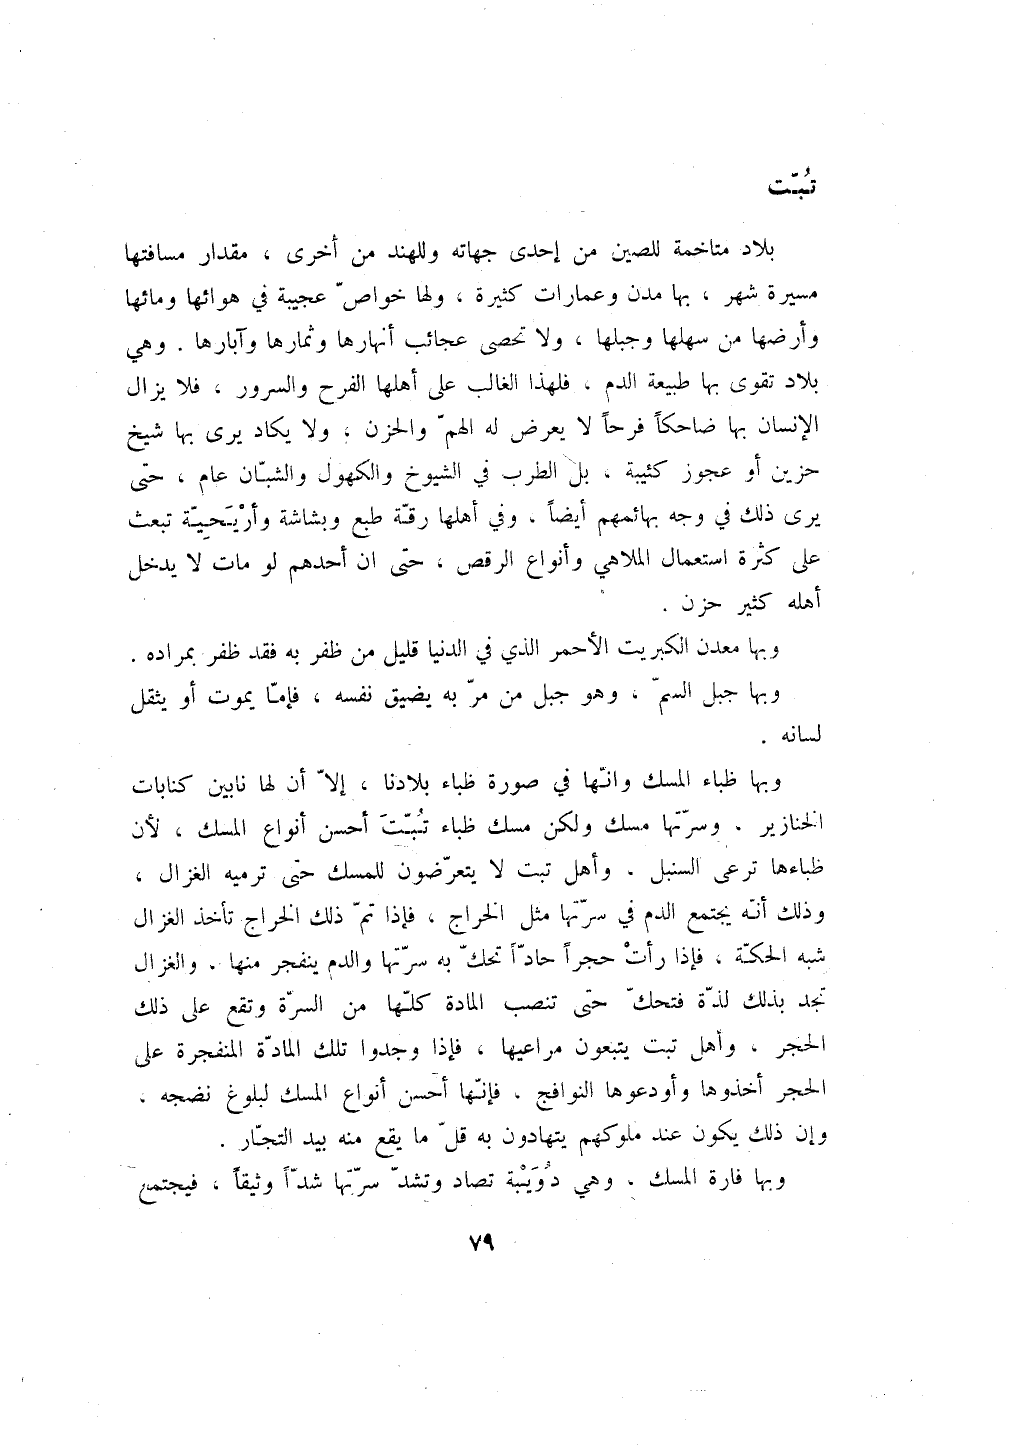 تُبّت
بلاد متاخمة للصين من إحدى جهاته وللهند من أخرى ، مقدار مسافتها
مسيرة شهر ، بها مدن وعمارات كثيرة ، ولها خواصّ عجيبة في هوائها ومائها
وأرضها من سهلها وجبلها ، ولا تحصى عجائب أنهارها وثمارها وآبارها . وهي
بلاد تقوى بها طبيعة الدم ، فلهذا الغالب على أهلها الفرح والسرور ، فلا يزال
الإنسان بها ضاحكاً فرحاً لا يعرض له الهمّ والحزن ، ولا يكاد يرى بها شيخ
حزين أو عجوز كئيبة ، بل الطرب في الشيوخ والكهول والشبّان عام ، حتّى
يرى ذلك في وجه بهائمهم أيضاً ، وفي أهلها رقّة طبع وبشاشة وأرْيَحيّة تبعث
على كثرة استعمال الملاهي وأنواع الرقص ، حتّى ان أحدهم لو مات لا يدخل
أهله كثير حزن .
وبها معدن الكبريت الأحمر الذي في الدنيا قليل من ظفر به فقد ظفر بمراده .
وبها جبل السمّ ، وهو جبل من مرّ به يضيق نفسه ، فإمّا يموت أو يثقل
لسانه .
وبها ظباء المسك وانّها في صورة ظباء بلادنا ، إلاّ أن لها نابين كنابات
الخنازير . وسرّتها مسك ولكن مسك ظباء تُبّتَ أحسن أنواع المسك ، لأن
ظباءها ترعى السنبل . وأهل تبت لا يتعرّضون للمسك حتى ترميه الغزال ،
وذلك أنّه يجتمع الدم في سرّتها مثل الخراج ، فإذا تمّ ذلك الخراج تأخذ الغزال
شبه الحكّة ، فإذا رأتْ حجراً حادّاً تحكّ به سرّتها والدم ينفجر منها . والغزال
تجد بذلك لذّة فتحكّ حتى تنصب المادة كلّها من السرّة وتقع على ذلك
الحجر . وأهل تبت يتبعون مراعيها ، فإذا وجدوا تلك المادّة المنفجرة على
الحجر أخذوها وأودعوها النوافج . فإنّها أحسن أنواع المسك لبلوغ نضجه ،
وإن ذلك يكون عند ملوكهم يتهادون به قلّ ما يقع منه بيد التجّار .
وبها فارة المسك . وهي دُوَيْبة تصاد وتشدّ سرّتها شدّاً وثيقاً ، فيجتمع
٧٩